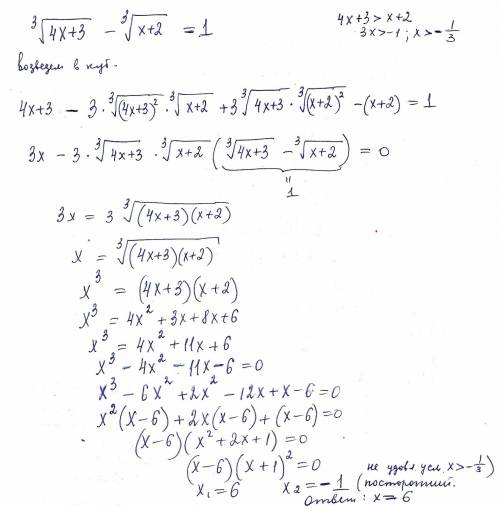 ∛(4x+3) − ∛(x+2) = 1
4x+3 > x+2
3x > −1; x > −1/3
возведем в куб.
4x+3 − 3·∛((4x+3)²)·∛(x+2) + 3∛(4x+3)·∛((x+2)²) − (x+2) = 1
3x − 3·∛(4x+3)·∛(x+2) (∛(4x+3) − ∛(x+2)) = 0
"
1
3x = 3 ∛((4x+3)(x+2))
x = ∛((4x+3)(x+2))
x³ = (4x+3)(x+2)
x³ = 4x² + 3x + 8x + 6
x³ = 4x² + 11x + 6
x³ − 4x² − 11x − 6 = 0
x³ − 6x² + 2x² − 12x + x − 6 = 0
x²(x−6) + 2x(x−6) + (x−6) = 0
(x−6)(x² + 2x + 1) = 0
(x−6)(x+1)² = 0
x₁ = 6 x₂ = −1 не удовл. усл. x > −1/3)
(посторонний.
Ответ: x = 6